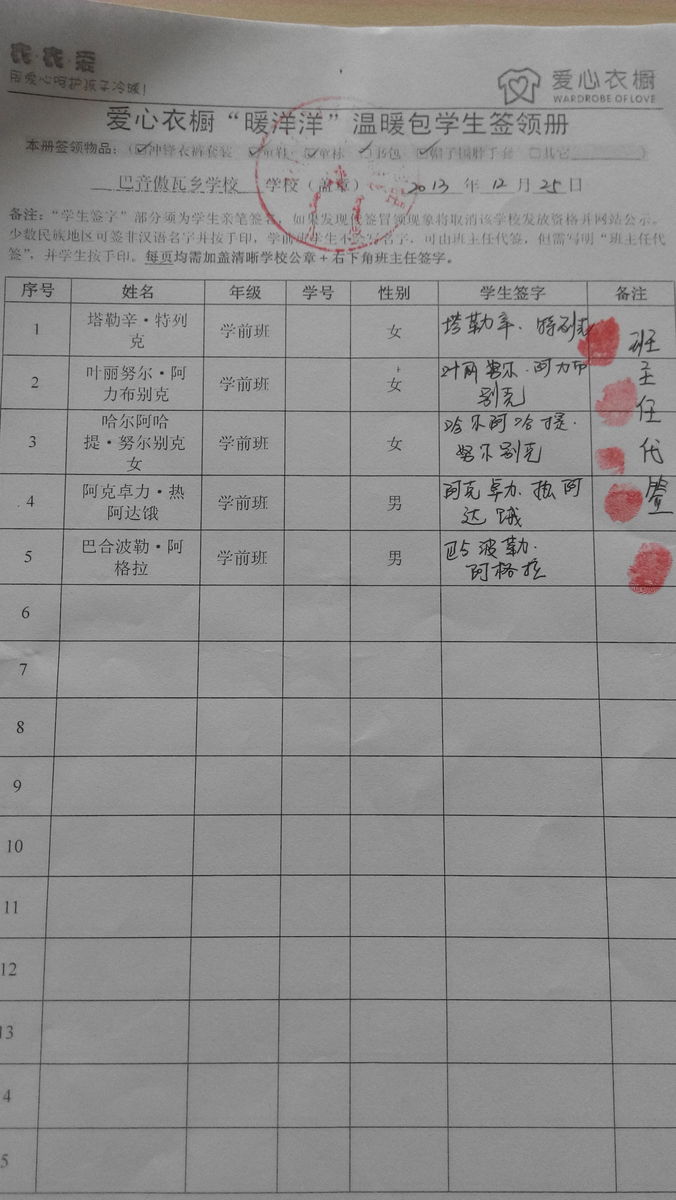 衣·衣·爱
用爱心呵护孩子冷暖!
爱心衣橱
WARDROBE OF LOVE
爱心衣橱“暖洋洋”温暖包学生签领册
本册签领物品:(☑冲锋衣裤套装 ☑童鞋 ☑童袜 ☑书包 ☑帽子围脖手套 □其它 )
巴音傲瓦乡学校 学校(盖章) 2013 年 12 月 25 日
备注:“学生签字”部分须为学生亲笔签名,如果发现代签冒领现象将取消该学校发放资格并网站公示。
少数民族地区可签非汉语名字并按手印,学前班学生不会写名字,可由班主任代签,但需写明“班主任代
签”,并学生按手印。每页均需加盖清晰学校公章+右下角班主任签字。
序号 姓名 年级 学号 性别 学生签字 备注
1 塔勒辛·特列克 学前班 女 塔勒辛·特列克
2 叶丽努尔·阿力布别克 学前班 女 叶丽努尔·阿力布别克
3 哈尔阿哈提·努尔别克女 学前班 女 哈尔阿哈提·努尔别克
4 阿克卓力·热阿达饿 学前班 男 阿克卓力·热阿达饿
5 巴合波勒·阿格拉 学前班 男 波勒·阿格拉
班主任代签
6
7
8
9
10
11
12
13
4
5